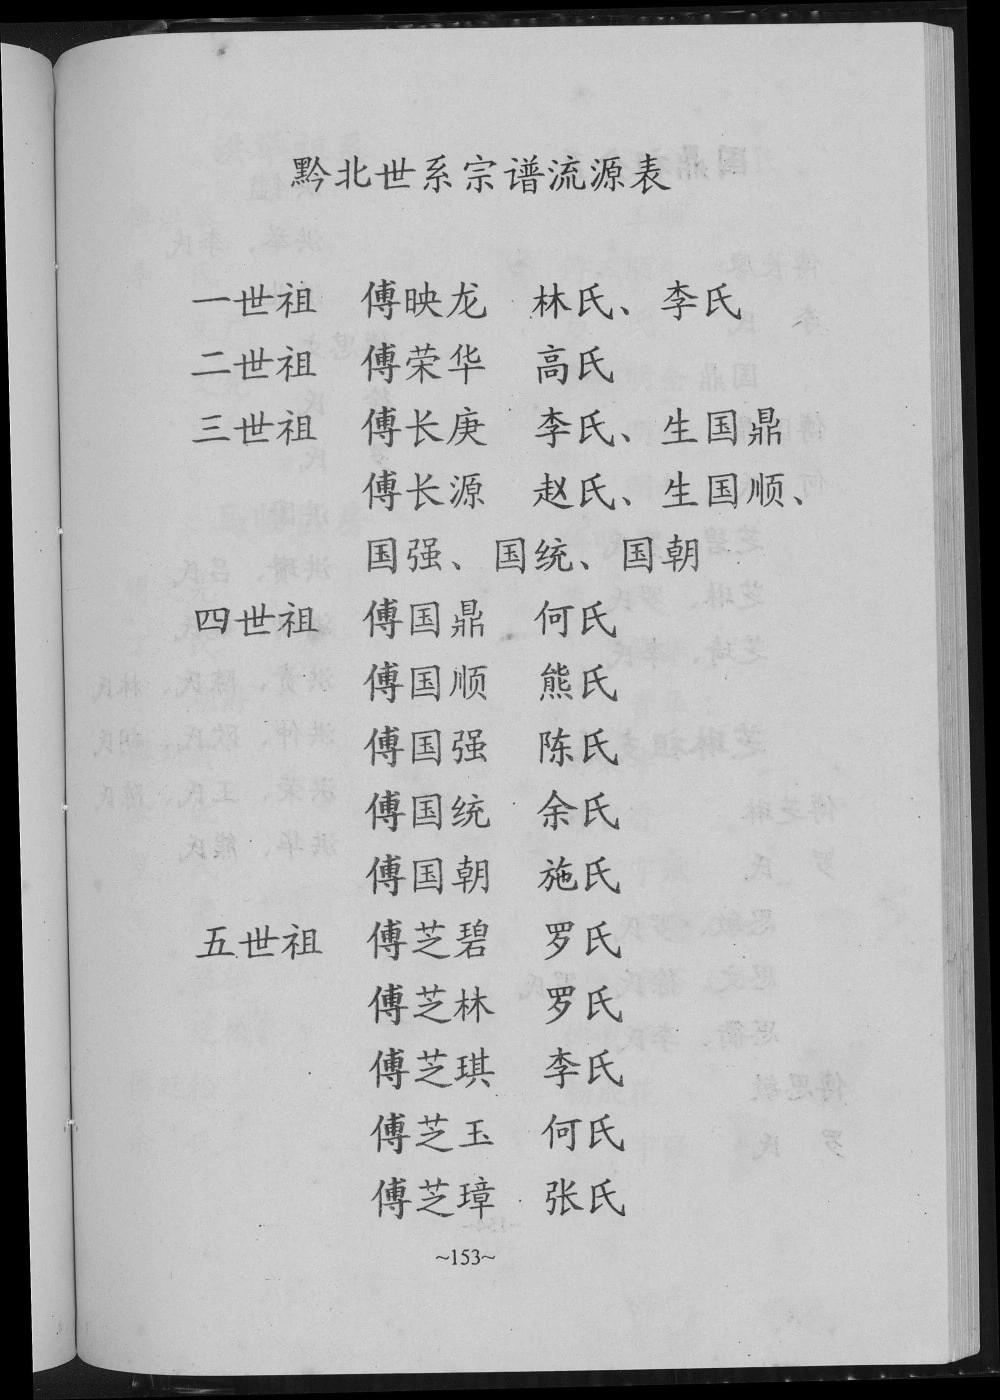 黔北世系宗谱流源表
一世祖 傅映龙 林氏、李氏
二世祖 傅荣华 高氏
三世祖 傅长庚 李氏、生国鼎
傅长源 赵氏、生国顺、
国强、国统、国朝
四世祖 傅国鼎 何氏
傅国顺 熊氏
傅国强 陈氏
傅国统 余氏
傅国朝 施氏
五世祖 傅芝碧 罗氏
傅芝林 罗氏
傅芝琪 李氏
傅芝玉 何氏
傅芝璋 张氏
~153~